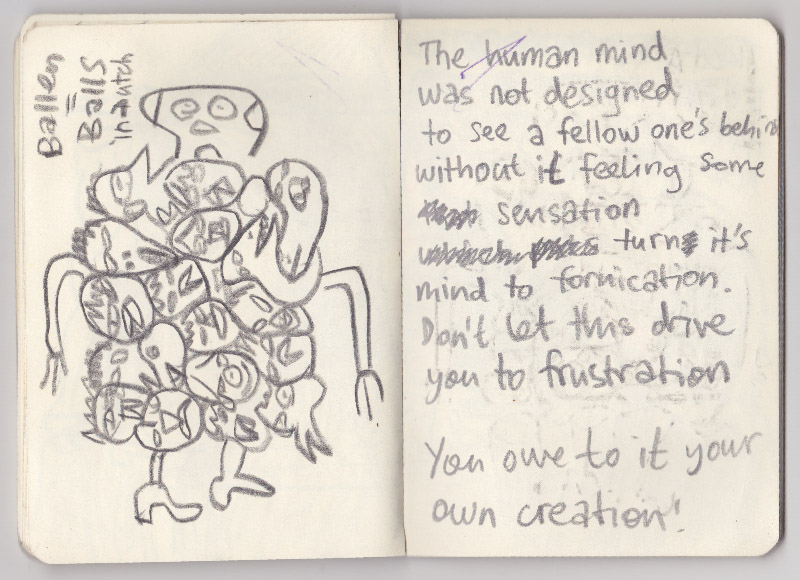 Ballen
=
Balls
in dutch
The human mind
was not designed
to see a fellow one's behin
without it feeling some
sensation
turn it's
mind to fornication.
Don't let this drive
you to frustration
You owe to it your
own creation!